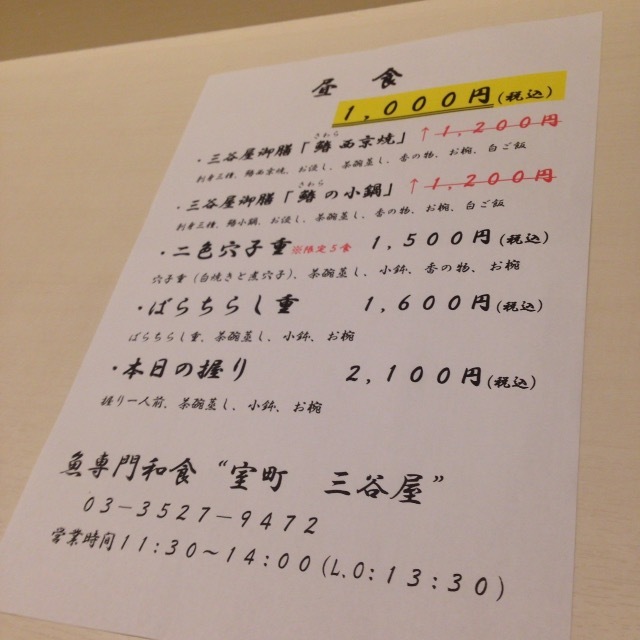 昼 食
1,000円(税込)
・三谷屋御膳「鰆西京焼」 ↑1,200円
さわら
刺身三種、鰆西京焼、お浸し、茶碗蒸し、香の物、お椀、白ご飯
・三谷屋御膳「鰆の小鍋」 ↑1,200円
さわら
刺身三種、鰆小鍋、お浸し、茶碗蒸し、香の物、お椀、白ご飯
・二色穴子重※限定5食 1,500円(税込)
穴子重(白焼きと煮穴子)、茶碗蒸し、小鉢、香の物、お椀
・ばらちらし重 1,600円(税込)
ばらちらし重、茶碗蒸し、小鉢、お椀
・本日の握り 2,100円(税込)
握り一人前、茶碗蒸し、小鉢、お椀
魚専門和食 “室町 三谷屋”
03-3527-9472
営業時間11:30~14:00(L.O:13:30)